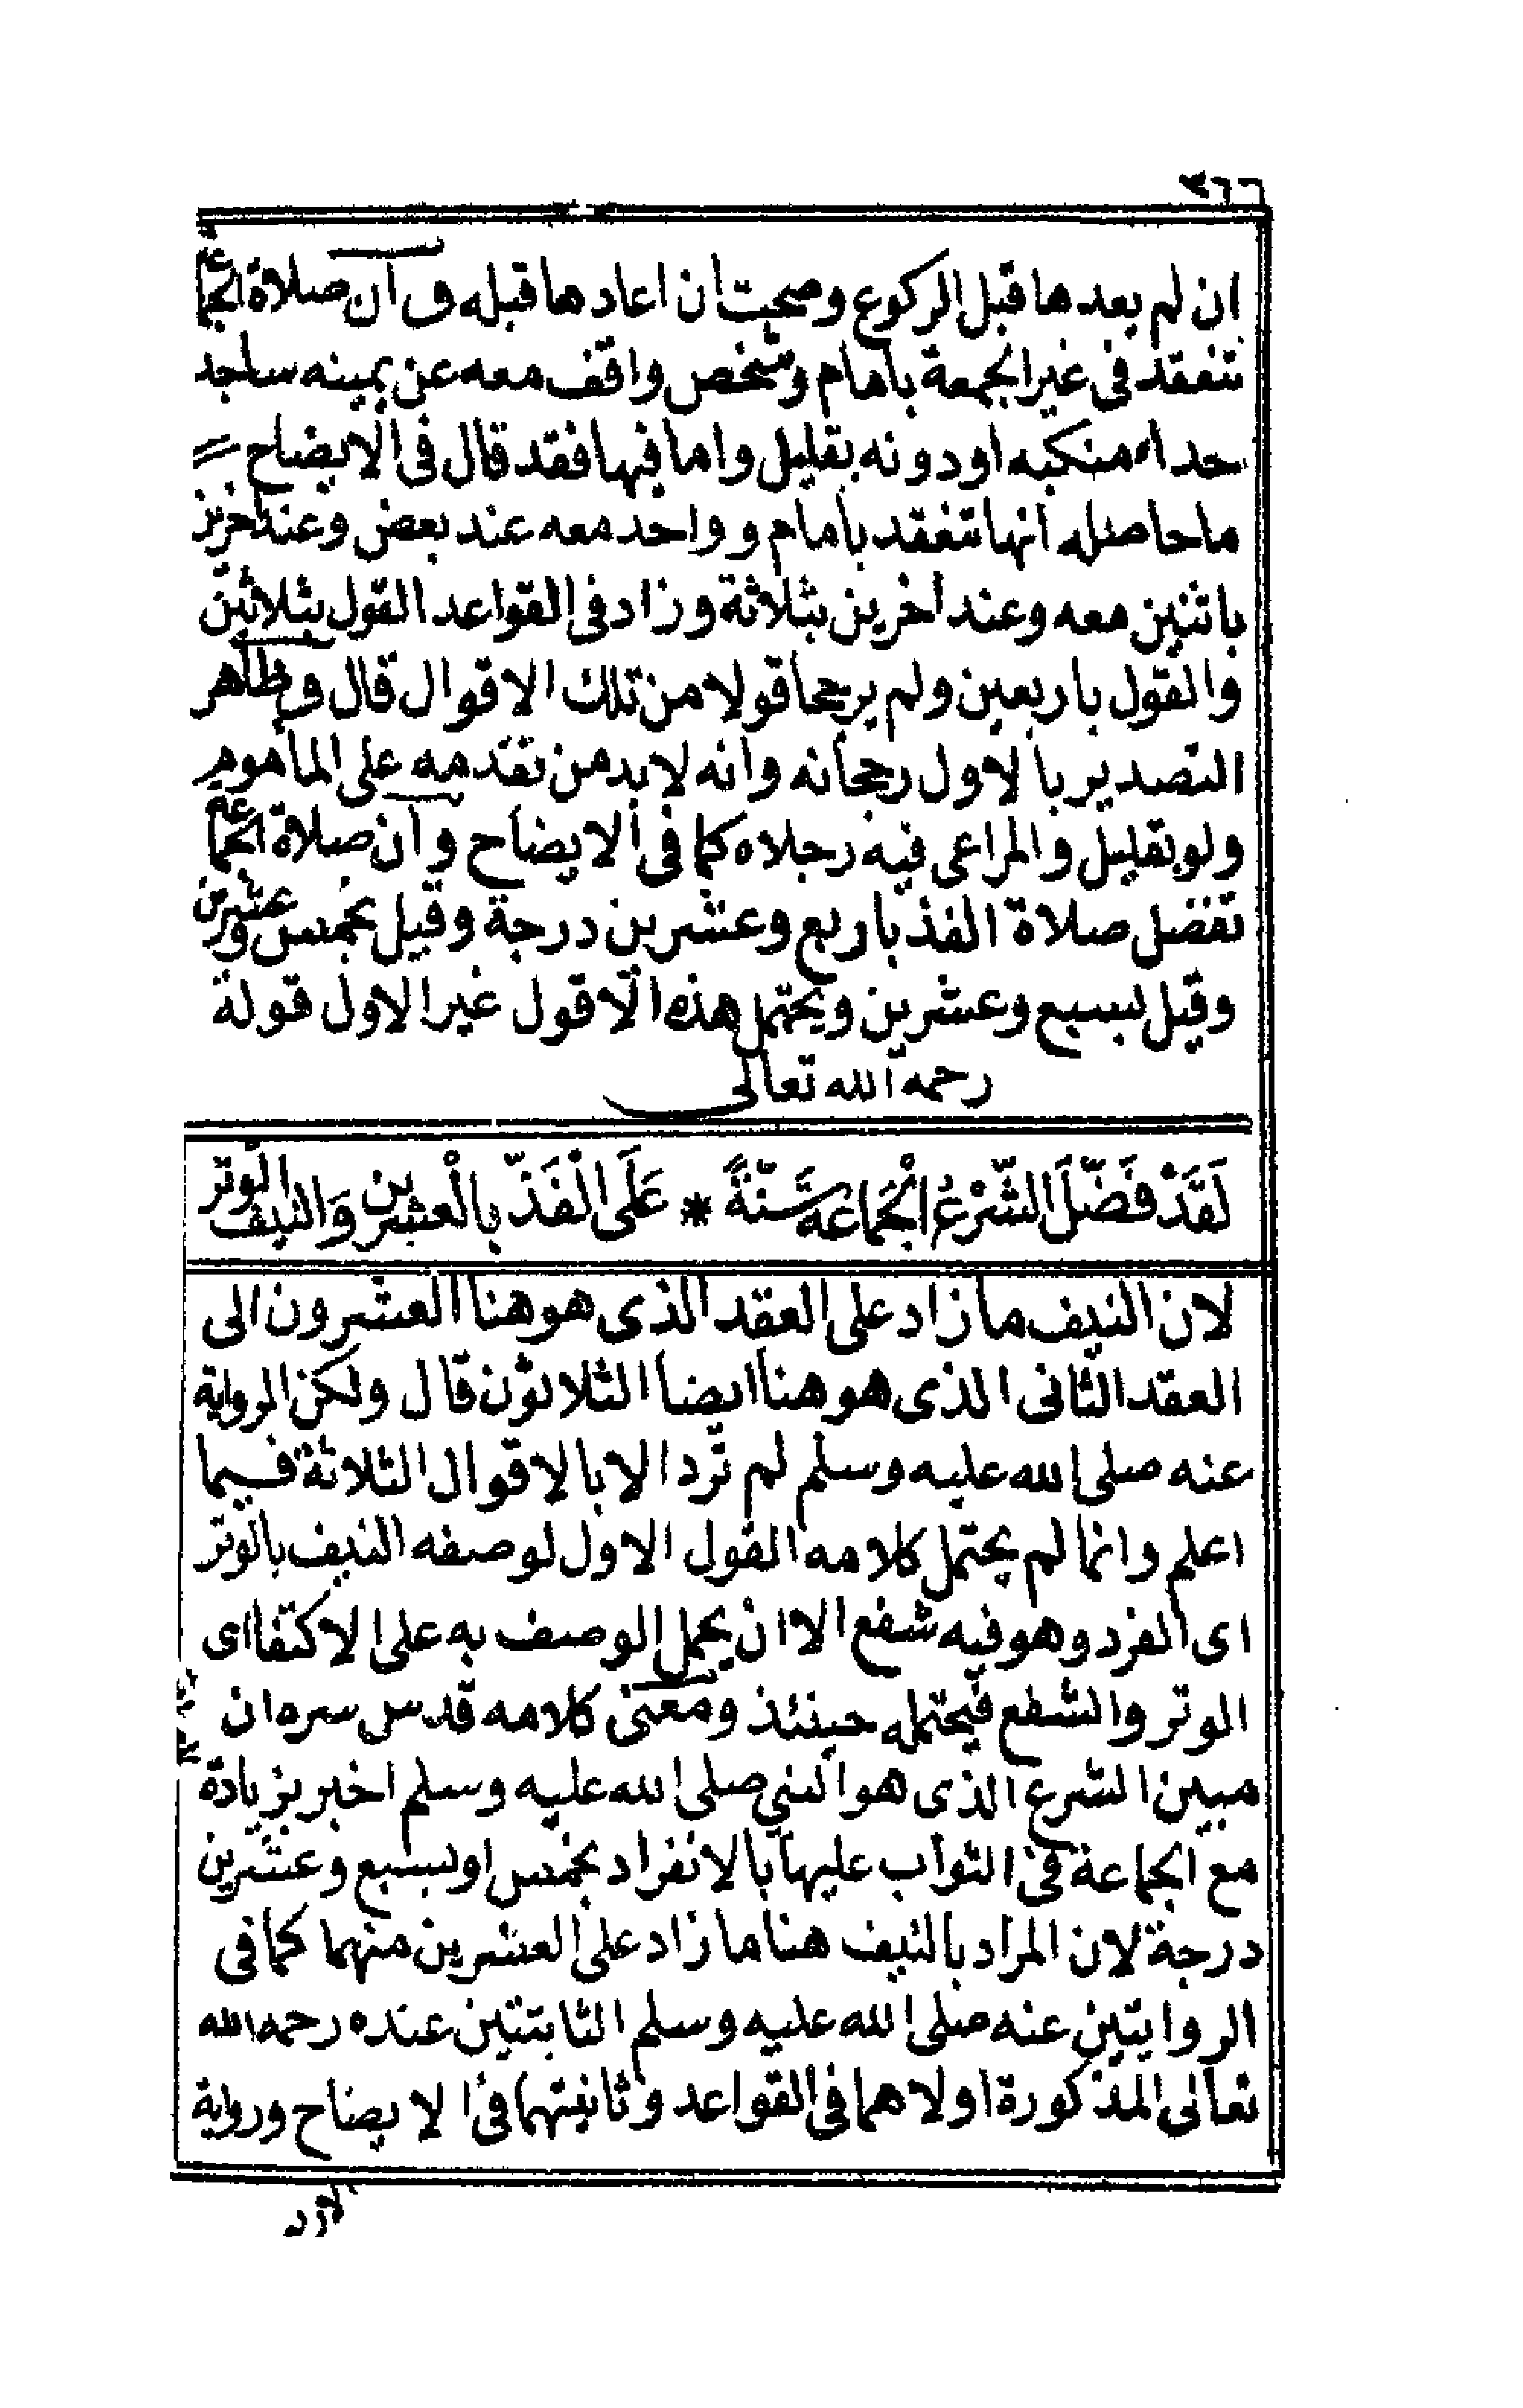 ٣٦٦
ان لم يعدها قبل الركوع وصحت ان اعادها قبله وان صلاة الجماعة
تنعقد فى غير الجمعة بامام وشخص واقف معه عن يمينه ساجد
حداء منكبه اودونه بقليل واما فيها فقد قال فى الايضاح
ما حاصله انها تنعقد بامام وواحد معه عند بعض وعند اخرين
باثنين معه وعند اخرين بثلاثة وزاد فى القواعد القول بثلاثين
والقول باربعين ولم يرجحا قولا من تلك الاقوال قال وظاهر
التصدير بالاول رجحانه وانه لابد من تقدمه على المأموم
ولو بقليل والمراعى فيه رجلاه كما فى الايضاح وان صلاة الجماعة
تفضل صلاة الفذ باربع وعشرين درجة وقيل بخمس وعشرين
وقيل بسبع وعشرين ويحتمل هذه الاقول غير الاول قوله
رحمه الله تعالى
لَقَدْ فَضَّلَ الشَّرْعُ الْجَمَاعَةَ سَنَّةً * عَلَى الْفَذِّ بِالْعِشْرِينَ وَالنَّيِّفِ الْوِتْرِ
لان النيف ما زاد على العقد الذى هو هنا العشرون الى
العقد الثانى الذى هو هنا ايضا الثلاثون قال ولكن الرواية
عنه صلى الله عليه وسلم لم ترد الا بالاقوال الثلاثة فيما
اعلم وانما لم يحتمل كلامه القول الاول لوصفه النيف بالوتر
اى الفرد وهو فيه شفع الا ان يحمل الوصف به على الاكتفا اى
الوتر والشفع فيحتمله حينئذ ومعنى كلامه قدس سره ان
مبين الشرع الذى هو النبي صلى الله عليه وسلم اخبر بزيادة
مع الجماعة فى الثواب عليها بالانفراد بخمس او بسبع وعشرين
درجة لان المراد بالنيف هنا ما زاد على العشرين منهما كما فى
الروايتين عنه صلى الله عليه وسلم الثابتتين عنده رحمه الله
تعالى المذكورة اولاهما فى القواعد وثانيتهما فى الايضاح ورواية